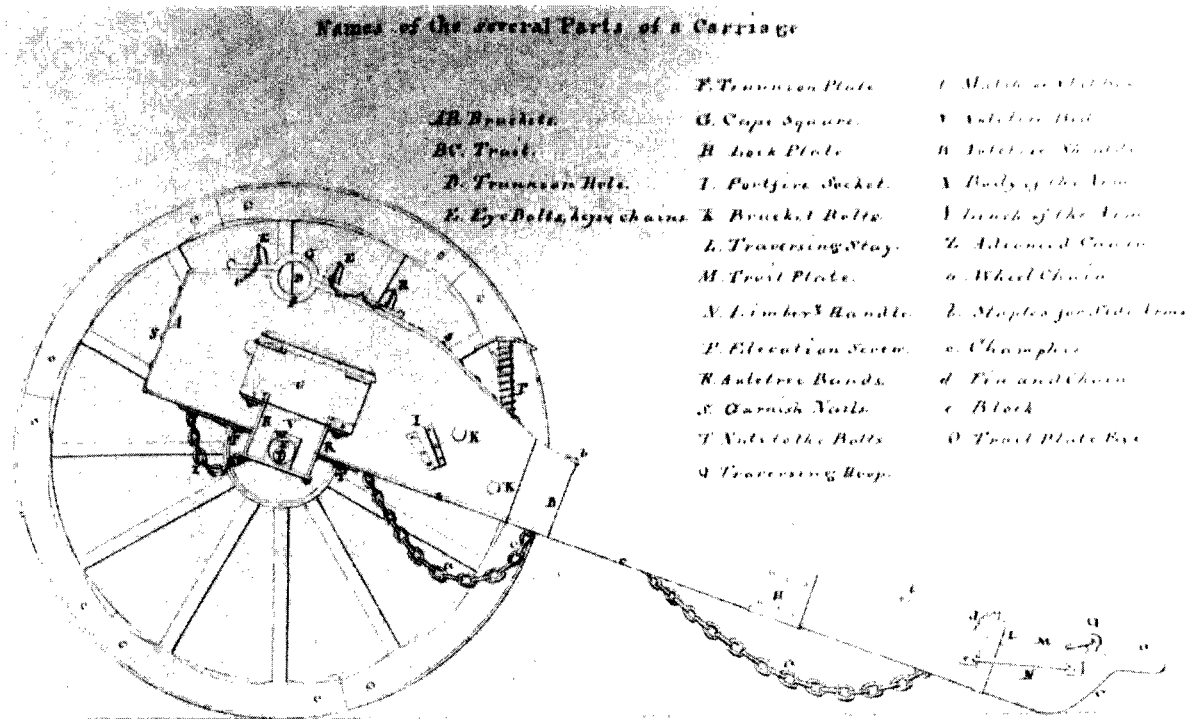 Names of the several Parts of a Carriage
AB. Brackets.
BC. Trail.
D. Trunnion Hole.
E. Eye Bolts, keys & chains.
F. Trunnion Plate
G. Caps Square.
H Lock Plate
I. Portfire Socket.
K Bracket Bolts
L. Traversing Stay.
M. Trail Plate.
N. Limber's Handle.
P. Elevation Screw.
R Axletree Bands.
S. Garnish Nails.
T Nuts to the Bolts
Q Traversing Hoop.
V Axletree Bed
X Body of the Arm
Y Linch of the Arm
Z
a. Wheel Chain
b. Staples for Side Arms
c. Champher
d Pin and Chain
e Block
O Trail Plate Eye
E
G
E
E
D
F
S
A
U
P
I
K
K
R
V
R
b
B
c
H
L
M
q
N
o